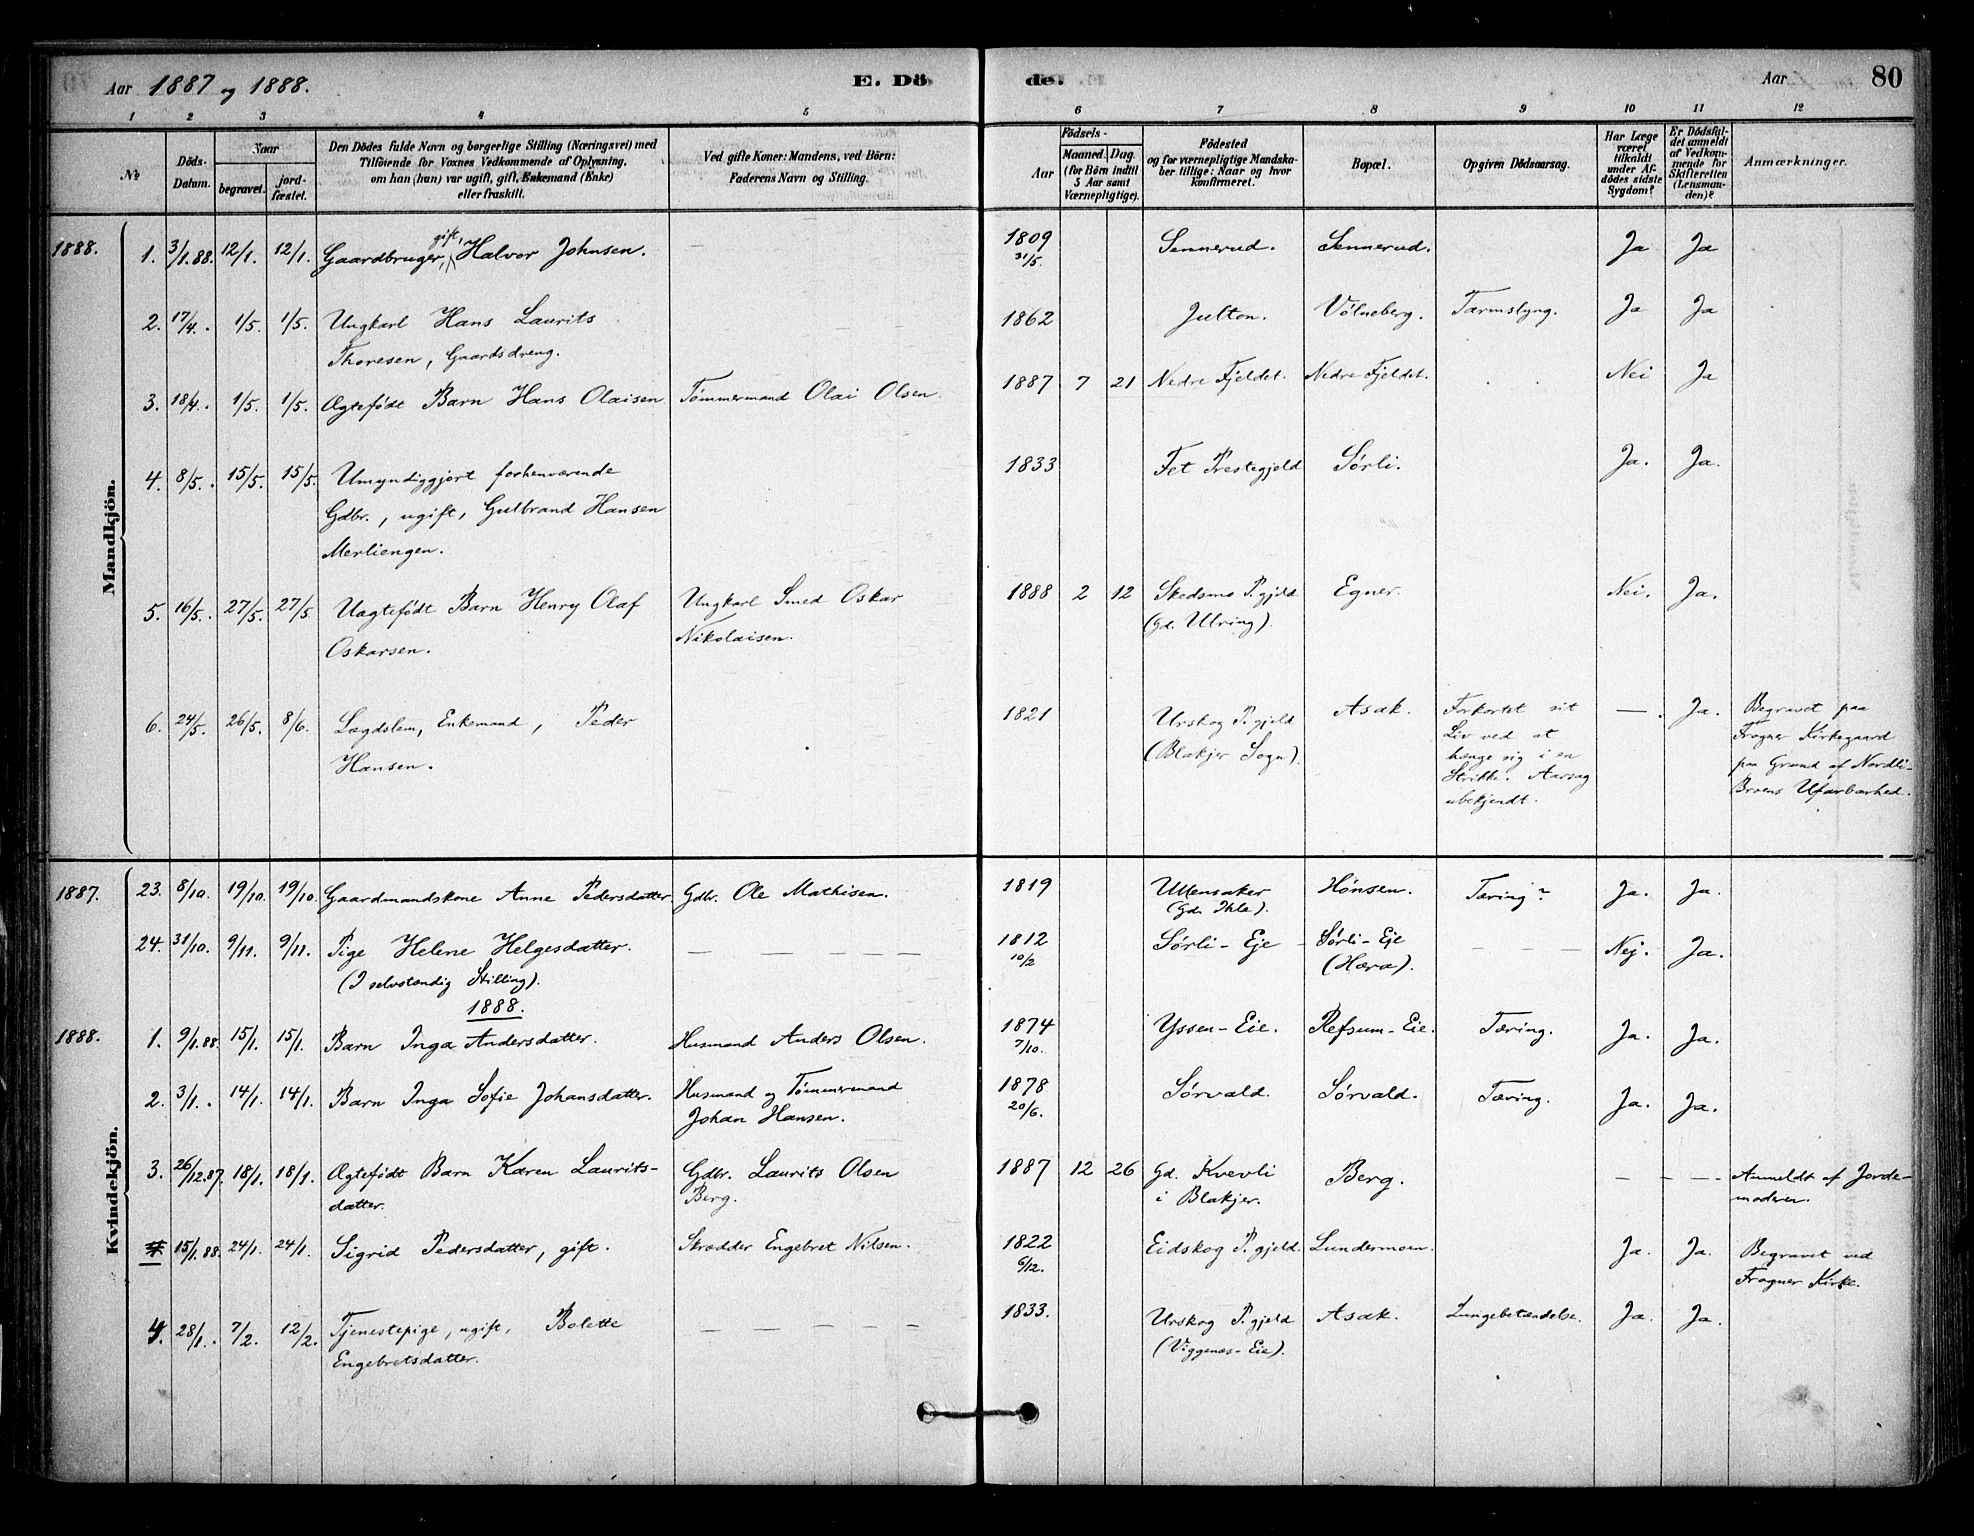 Aar 1887 og 1888. E. Dö de. Aar 80
1 2 3 4 5 6 7 8 9 10 11 12
№
Döds-
Datum.
Naar
begravet.
jord-
fæstet.
Den Dödes fulde Navn og borgerlige Stilling (Næringsvei) med
Tilföiende for Voxnes Vedkommende af Oplysning,
om han (hun) var ugift, gift, Enkemand (Enke)
eller fraskilt.
Ved gifte Koner: Mandens, ved Börn:
Faderens Navn og Stilling.
Födsels-
Aar
Maaned. Dag.
(for Börn indtil
5 Aar samt
Værnepligtige).
Födested
og for værnepligtige Mandska-
ber tillige: Naar og hvor
konfirmeret.
Bopæl.
Opgiven Dödsaarsag.
Har Læge
været
tilkaldt
under Af-
dödes sidste
Sygdom?
Er Dödsfal-
det anmeldt
af Vedkom-
mende for
Skifteretten
(Lensman-
den)?
Anmærkninger.
Mandkjön.
1888. 1. 3/1.88. 12/1. 12/1. Gaardbruger, gift, Halvor Johnsen. 1809 31/5. Sennerud. Sennerud. Ja Ja
2. 17/4. 1/5. 1/5. Ungkarl Hans Laurits 1862 Julton. Völneberg. Tarmslyng. Ja Ja
Thoresen, Gaardsdreng.
3. 18/4. 1/5. 1/5. Ægtefödt Barn Hans Olaisen Tømmermand Olai Olsen. 1887 7 21 Nedre Fjeldet. Nedre Fjeldet. Nei Ja
4. 8/5. 15/5. 15/5. Umyndiggjort forhenværende 1833 Fet Prestegjeld Sørli. Ja. Ja.
Gdbr., ugift, Gulbrand Hansen
Merliengen.
5. 16/5. 27/5. 27/5. Uægtefödt Barn Henry Olaf Ungkarl Smed Oskar 1888 2 12 Skedsmo P.gjeld Egner. Nei. Ja.
Oskarsen. Nikolaisen. (Gd. Ulring).
6. 24/5. 26/5. 8/6. Lægdslem, Enkemand, Peder 1821 Urskog P.gjeld Asak. Forkortet sit — . Ja. Begravet paa
Hansen. (Blakjer Sogn). Liv ved at Frogner Kirkegaard
hænge sig i en paa Grund af Nordli-
Strikke. Aarsag Broens Ufarbarhed.
ubekjendt.
Kvindekjön.
1887. 23. 8/10. 19/10. 19/10. Gaardmandskone Anne Pedersdatter. Gdbr. Ole Mathisen. 1819 Ullensaker Hönsen. Tæring? Ja. Ja.
(Gd. Ihle).
24. 31/10. 9/11. 9/11. Pige Helene Helgesdatter. — — — — — 1812 10/2 Sørli-Eje Sørli-Eje — — — Nej. Ja.
(I selvstændig Stilling). (Hæra).
1888.
1888. 1. 9/1.88. 15/1. 15/1. Barn Inga Andersdatter. Husmand Anders Olsen. 1874 7/10. Yssen-Eie. Refsum-Eie. Tæring. Ja. Ja.
2. 3/1. 14/1. 14/1. Barn Inga Sofie Johansdatter. Husmand og Tømmermand 1878 20/6. Sørvald. Sørvald. Tæring. Ja. Ja.
Johan Hansen.
3. 26/12.87. 18/1. 18/1. Ægtefödt Barn Karen Laurits- Gdbr. Laurits Olsen 1887 12 26 Gd. Kvevli Berg. — — — Anmeldt af Jorde-
datter. Berg. i Blakjer. moderen.
15/1.88. 24/1. 24/1. Sigrid Pedersdatter, gift. Skrædder Engebret Nilsen. 1822 6/12. Eidskog P.gjeld. Lundermoen. Ja. Ja. Begravet ved
Frogner Kirke.
4. 28/1. 7/2. 12/2. Tjenestepige, ugift, Bolette — — — — — 1833. Urskog P.gjeld Asak. Lungebetændelse. Ja. Ja.
Engebretsdatter. (Viggenes-Eie).